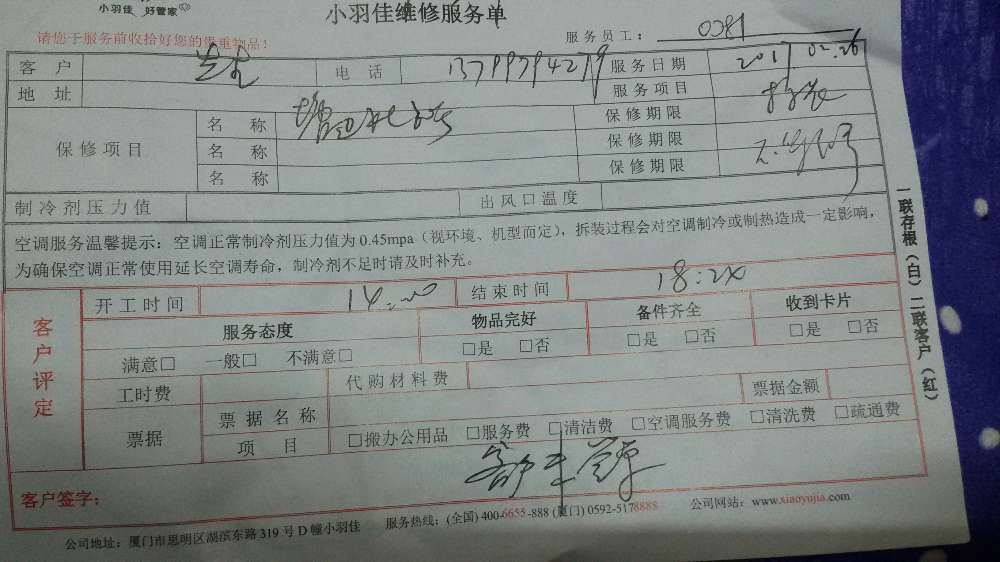 小羽佳 好管家
小羽佳维修服务单
请您于服务前收拾好您的贵重物品!
服务员工: 0381
客户 电话 13799394279 服务日期 2017 02.26
地址 服务项目
保修项目 名称 保修期限
名称 保修期限
名称 保修期限
制冷剂压力值 出风口温度
空调服务温馨提示: 空调正常制冷剂压力值为 0.45mpa (视环境、机型而定), 拆装过程会对空调制冷或制热造成一定影响,
为确保空调正常使用延长空调寿命, 制冷剂不足时请及时补充。
客户评定
开工时间 14:00 结束时间 18:20
服务态度 物品完好 备件齐全 收到卡片
满意□ 一般□ 不满意□ □是 □否 □是 □否 □是 □否
工时费 代购材料费 票据金额
票据 票据名称
项目 □搬办公用品 □服务费 □清洁费 □空调服务费 □清洗费 □疏通费
客户签字:
公司地址: 厦门市思明区湖滨东路 319 号 D 幢小羽佳 服务热线: (全国) 400-6655-888 (厦门) 0592-5178888 公司网站: www.xiaoyujia.com
一联存根(白) 二联客户(红)